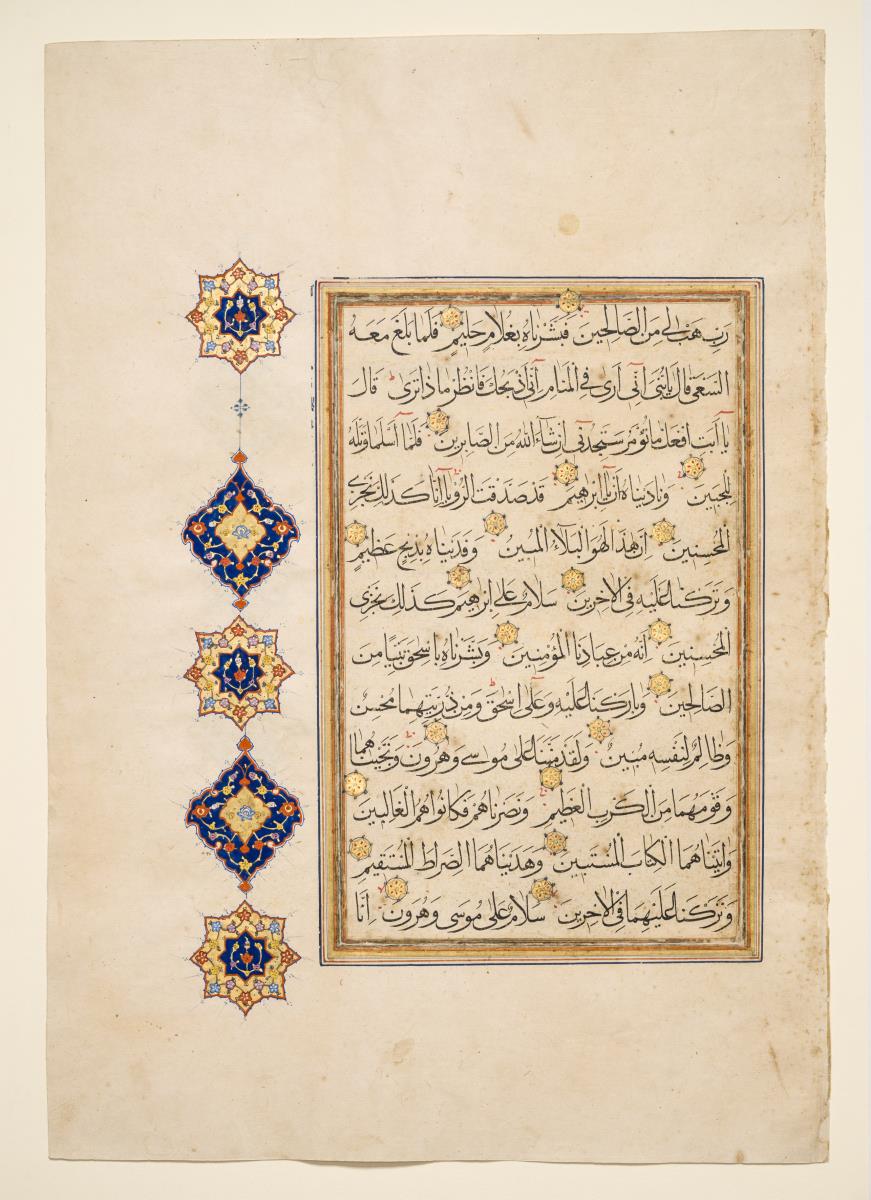 رَبِّ هَبْ لِي مِنَ الصَّالِحِينَ فَبَشَّرْنَاهُ بِغُلَامٍ حَلِيمٍ فَلَمَّا بَلَغَ مَعَهُ
السَّعْيَ قَالَ يَا بُنَيَّ إِنِّي أَرَى فِي الْمَنَامِ أَنِّي أَذْبَحُكَ فَانْظُرْ مَاذَا تَرَى قَالَ
يَا أَبَتِ افْعَلْ مَا تُؤْمَرُ سَتَجِدُنِي إِنْ شَاءَ اللَّهُ مِنَ الصَّابِرِينَ فَلَمَّا أَسْلَمَا وَتَلَّهُ
لِلْجَبِينِ وَنَادَيْنَاهُ أَنْ يَا إِبْرَهِيمُ قَدْ صَدَّقْتَ الرُّؤْيَا إِنَّا كَذَلِكَ نَجْزِي
الْمُحْسِنِينَ إِنَّ هَذَا لَهُوَ الْبَلَاءُ الْمُبِينُ وَفَدَيْنَاهُ بِذِبْحٍ عَظِيمٍ
وَتَرَكْنَا عَلَيْهِ فِي الْآخِرِينَ سَلَامٌ عَلَى إِبْرَهِيمَ كَذَلِكَ نَجْزِي
الْمُحْسِنِينَ إِنَّهُ مِنْ عِبَادِنَا الْمُؤْمِنِينَ وَبَشَّرْنَاهُ بِإِسْحَقَ نَبِيًّا مِنَ
الصَّالِحِينَ وَبَارَكْنَا عَلَيْهِ وَعَلَى إِسْحَقَ وَمِنْ ذُرِّيَّتِهِمَا مُحْسِنٌ
وَظَالِمٌ لِنَفْسِهِ مُبِينٌ وَلَقَدْ مَنَنَّا عَلَى مُوسَى وَهَرُونَ وَنَجَّيْنَاهُمَا
وَقَوْمَهُمَا مِنَ الْكَرْبِ الْعَظِيمِ وَنَصَرْنَاهُمْ فَكَانُوا هُمُ الْغَالِبِينَ
وَآتَيْنَاهُمَا الْكِتَابَ الْمُسْتَبِينَ وَهَدَيْنَاهُمَا الصِّرَاطَ الْمُسْتَقِيمَ
وَتَرَكْنَا عَلَيْهِمَا فِي الْآخِرِينَ سَلَامٌ عَلَى مُوسَى وَهَرُونَ إِنَّا